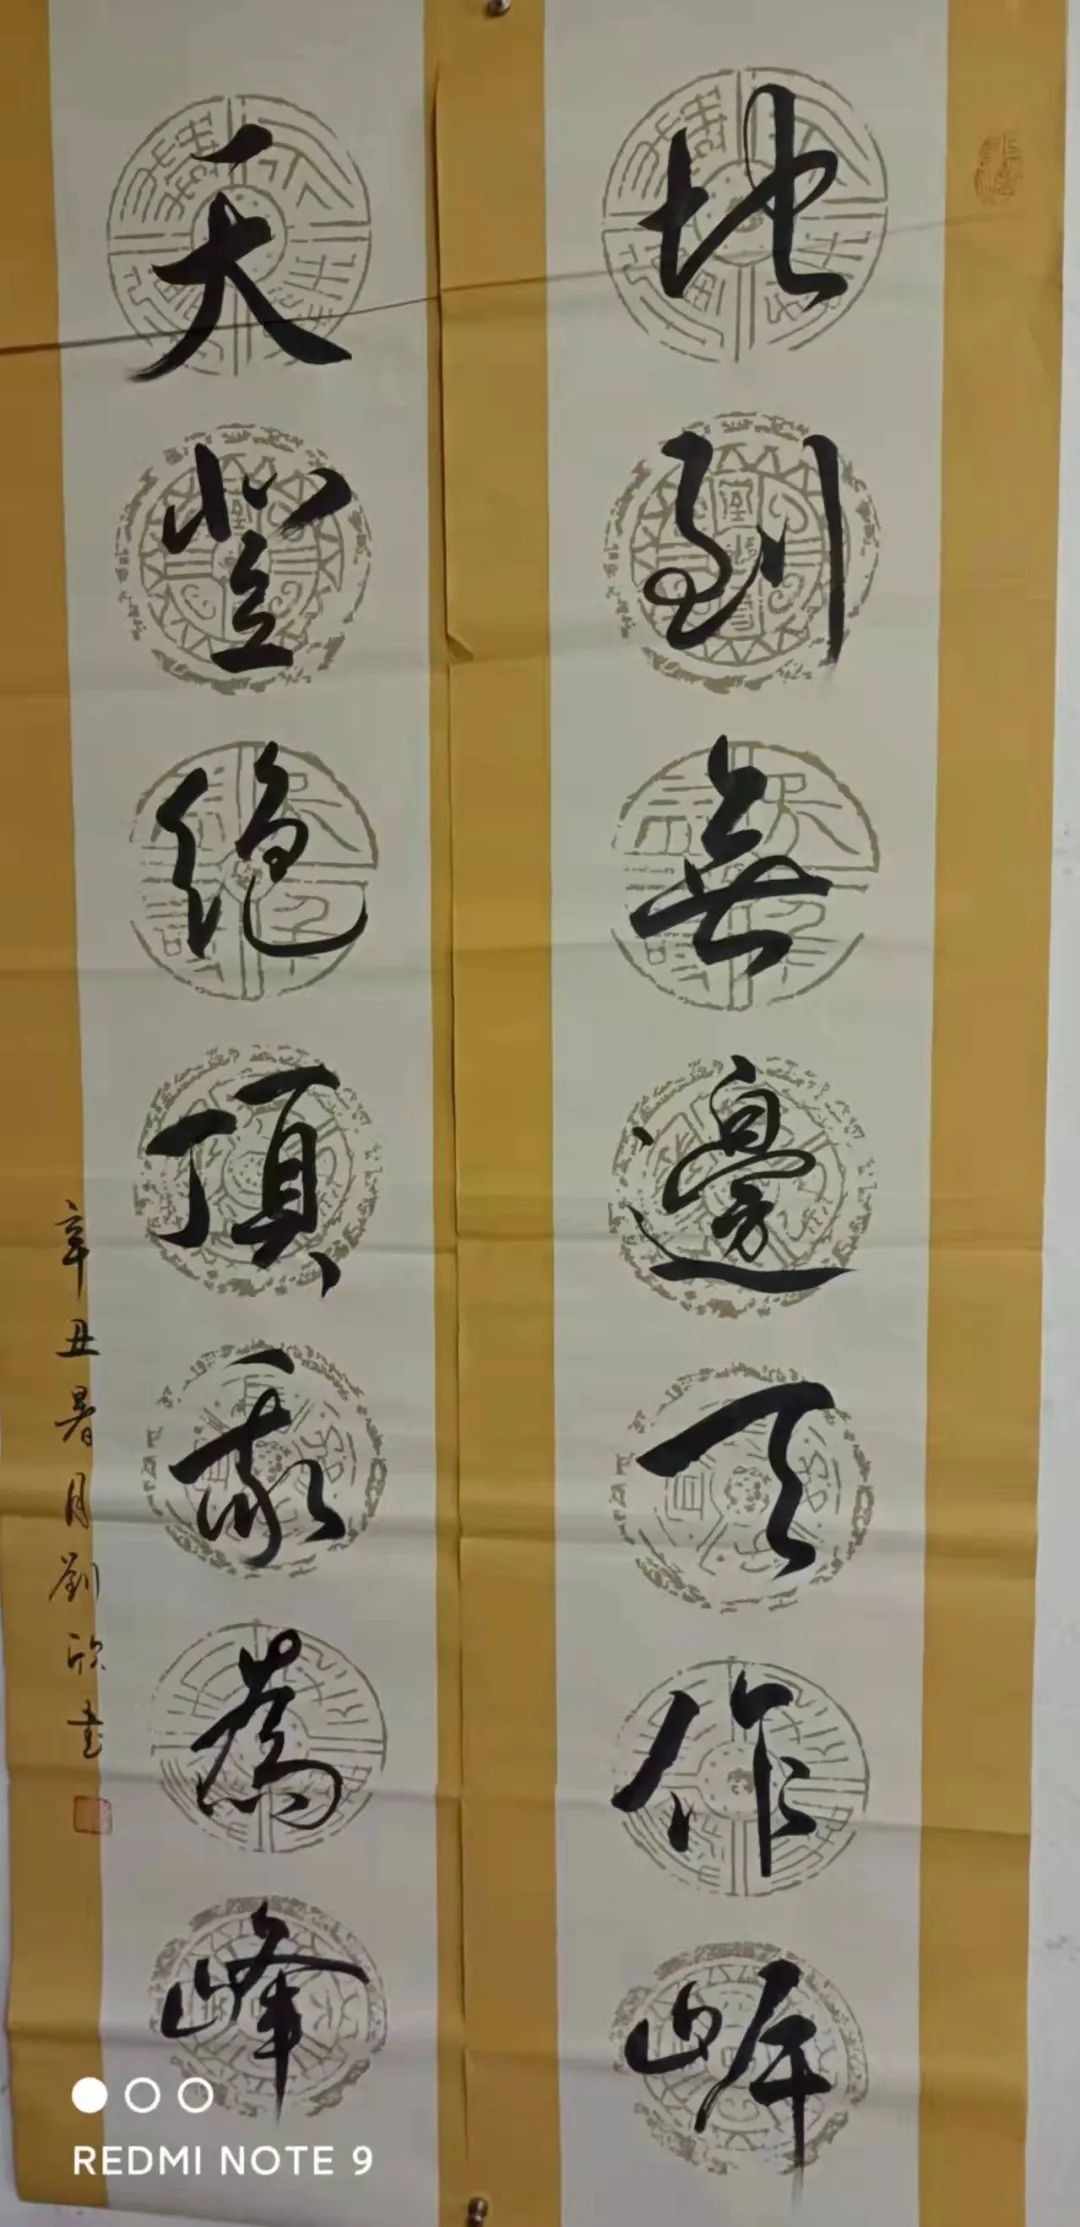 地到無邊天作岸
天登絕頂我為峰
辛丑暑月劉欣书
REDMI NOTE 9